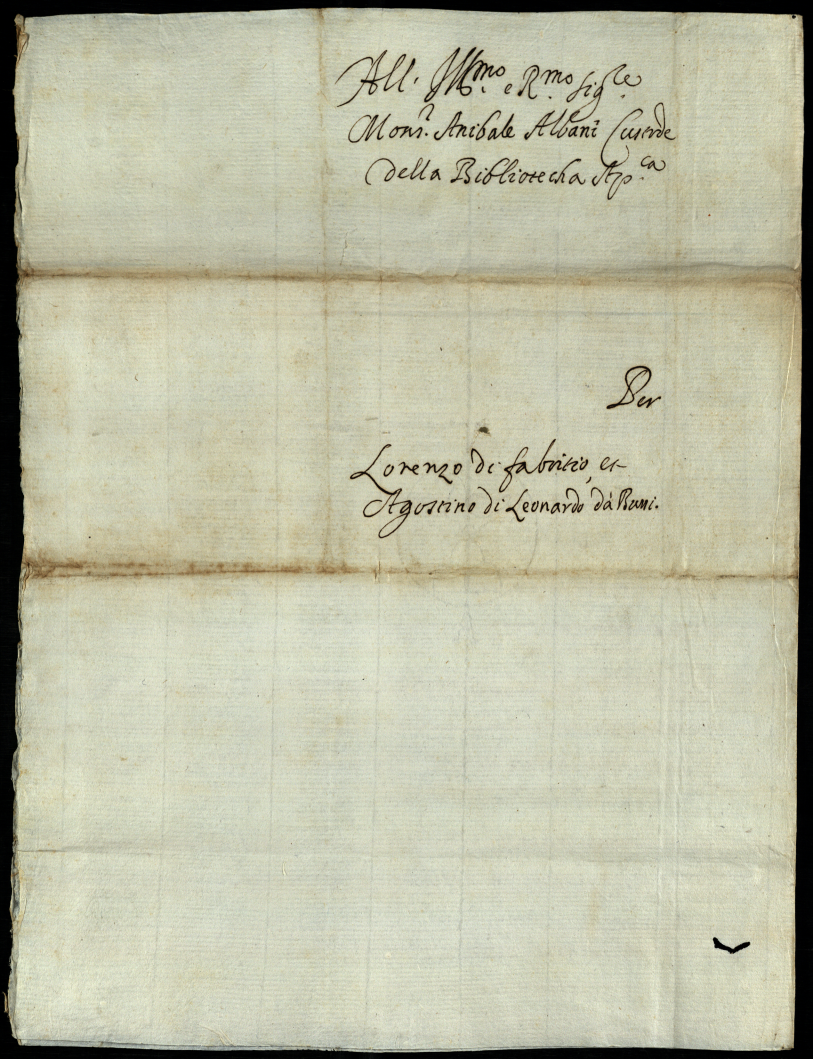 All' Ill.mo e R.mo Sig.re
Mons.r Anibale Albani Custode
della Bibliotecha Ap.ca
Per
Lorenzo di fabritio, et
Agostino di Leonardo dà